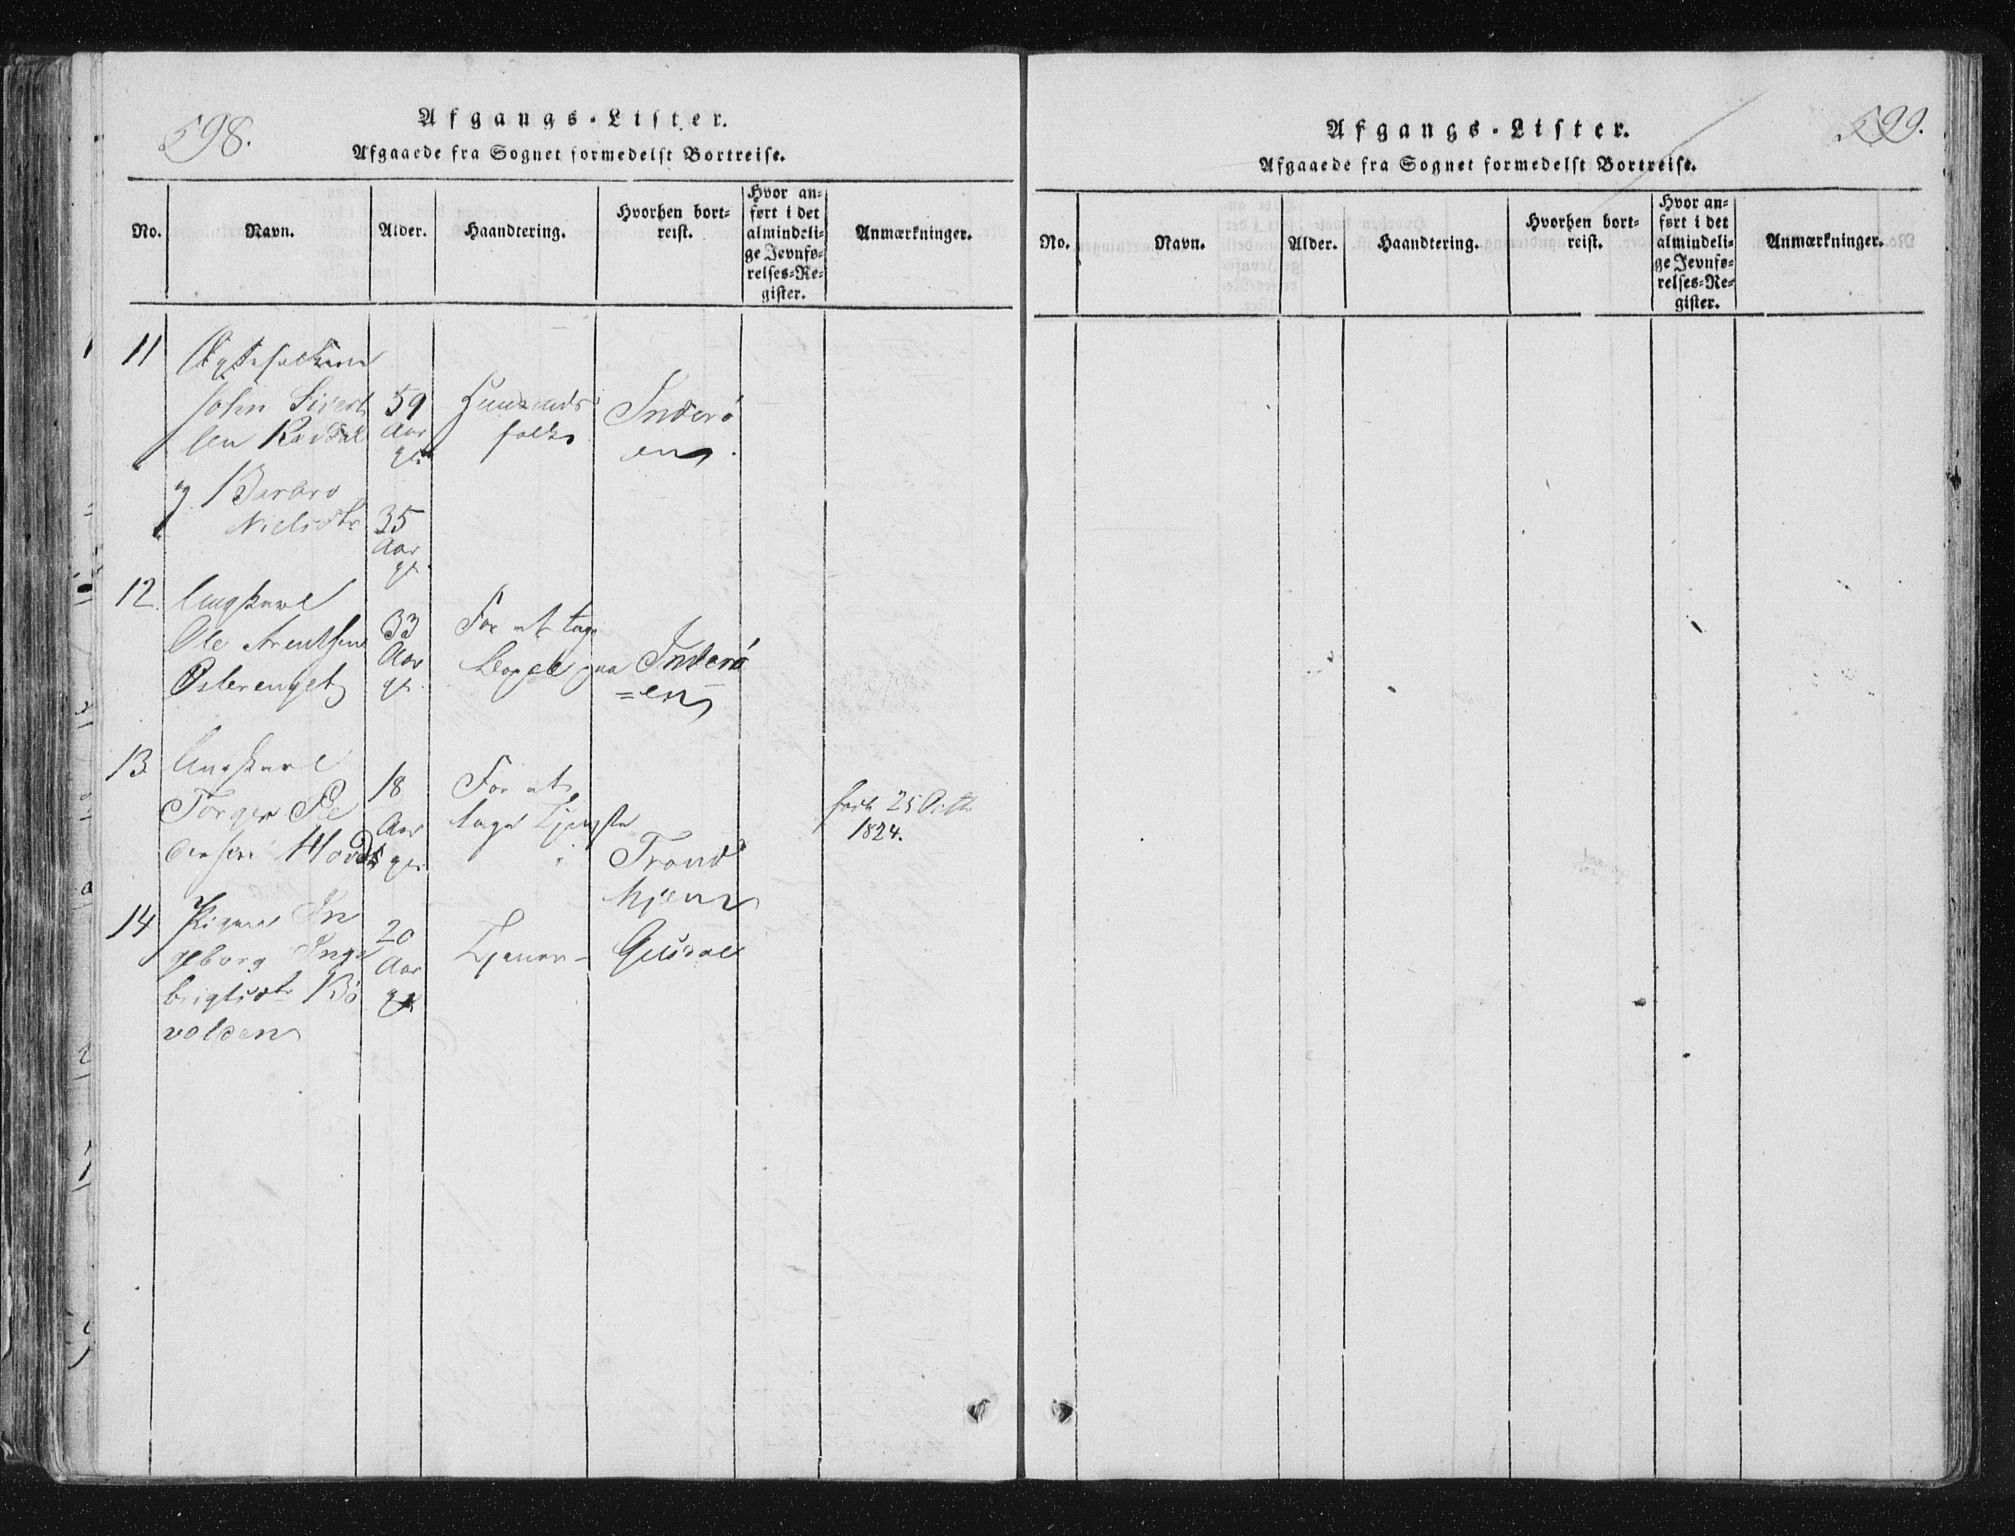 598.
Afgangs-Lister.
Afgaaede fra Sognet formedelst Bortreise.
No.
Navn.
Alder.
Haandtering.
Hvorhen bort-
reist.
Hvor an-
ført i det
almindeli-
ge Jevnfø-
relses-Re-
gister.
Anmærkninger.
11
Ægtefolkene
John Sivert
sen
og Berbro
Nielsdtr
59
Aar
gl.
35
Aar
gl.
Huusmands
folk
Inderø
en
12
Ungkarl
Ole Arentsen
Østerenget
33
Aar
gl.
For at tage
paa
Inderø
=en
13
Ungkarl
Torger Pe
dersen
18
Aar
gl.
For at
tage Tjeneste
Trond
hjem
25 Octbr
1824.
14
Pigen In
geborg Inge
brigtsdtr Bø
volden
20
Aar
gl.
Tjener
599.
Afgangs-Lister.
Afgaaede fra Sognet formedelst Bortreise.
No.
Navn.
Alder.
Haandtering.
Hvorhen bort-
reist.
Hvor an-
ført i det
almindeli-
ge Jevnfø-
relses-Re-
gister.
Anmærkninger.